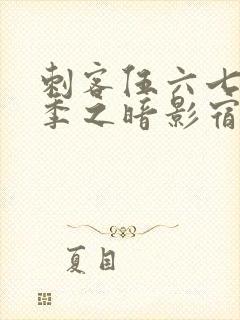 刺客伍六七
季之暗影宿
夏目